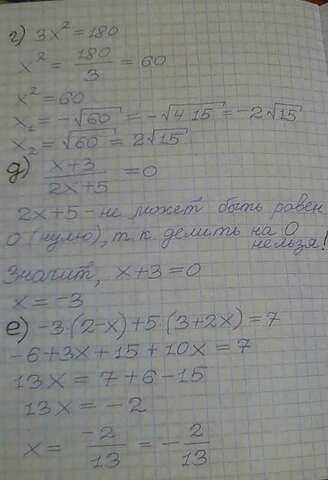 г) 3x² = 180
x² = 180/3 = 60
x² = 60
x₁ = -√60 = -√4 15 = -2√15
x₂ = √60 = 2√15
д) x+3/2x+5 = 0
2x+5 - не может быть равен
0 (нулю), т.к делить на 0
нельзя!
Значит, x+3=0
x = -3
е) -3·(2-x)+5·(3+2x)=7
-6+3x+15+10x=7
13x = 7+6-15
13x = -2
x = -2/13 = -2/13